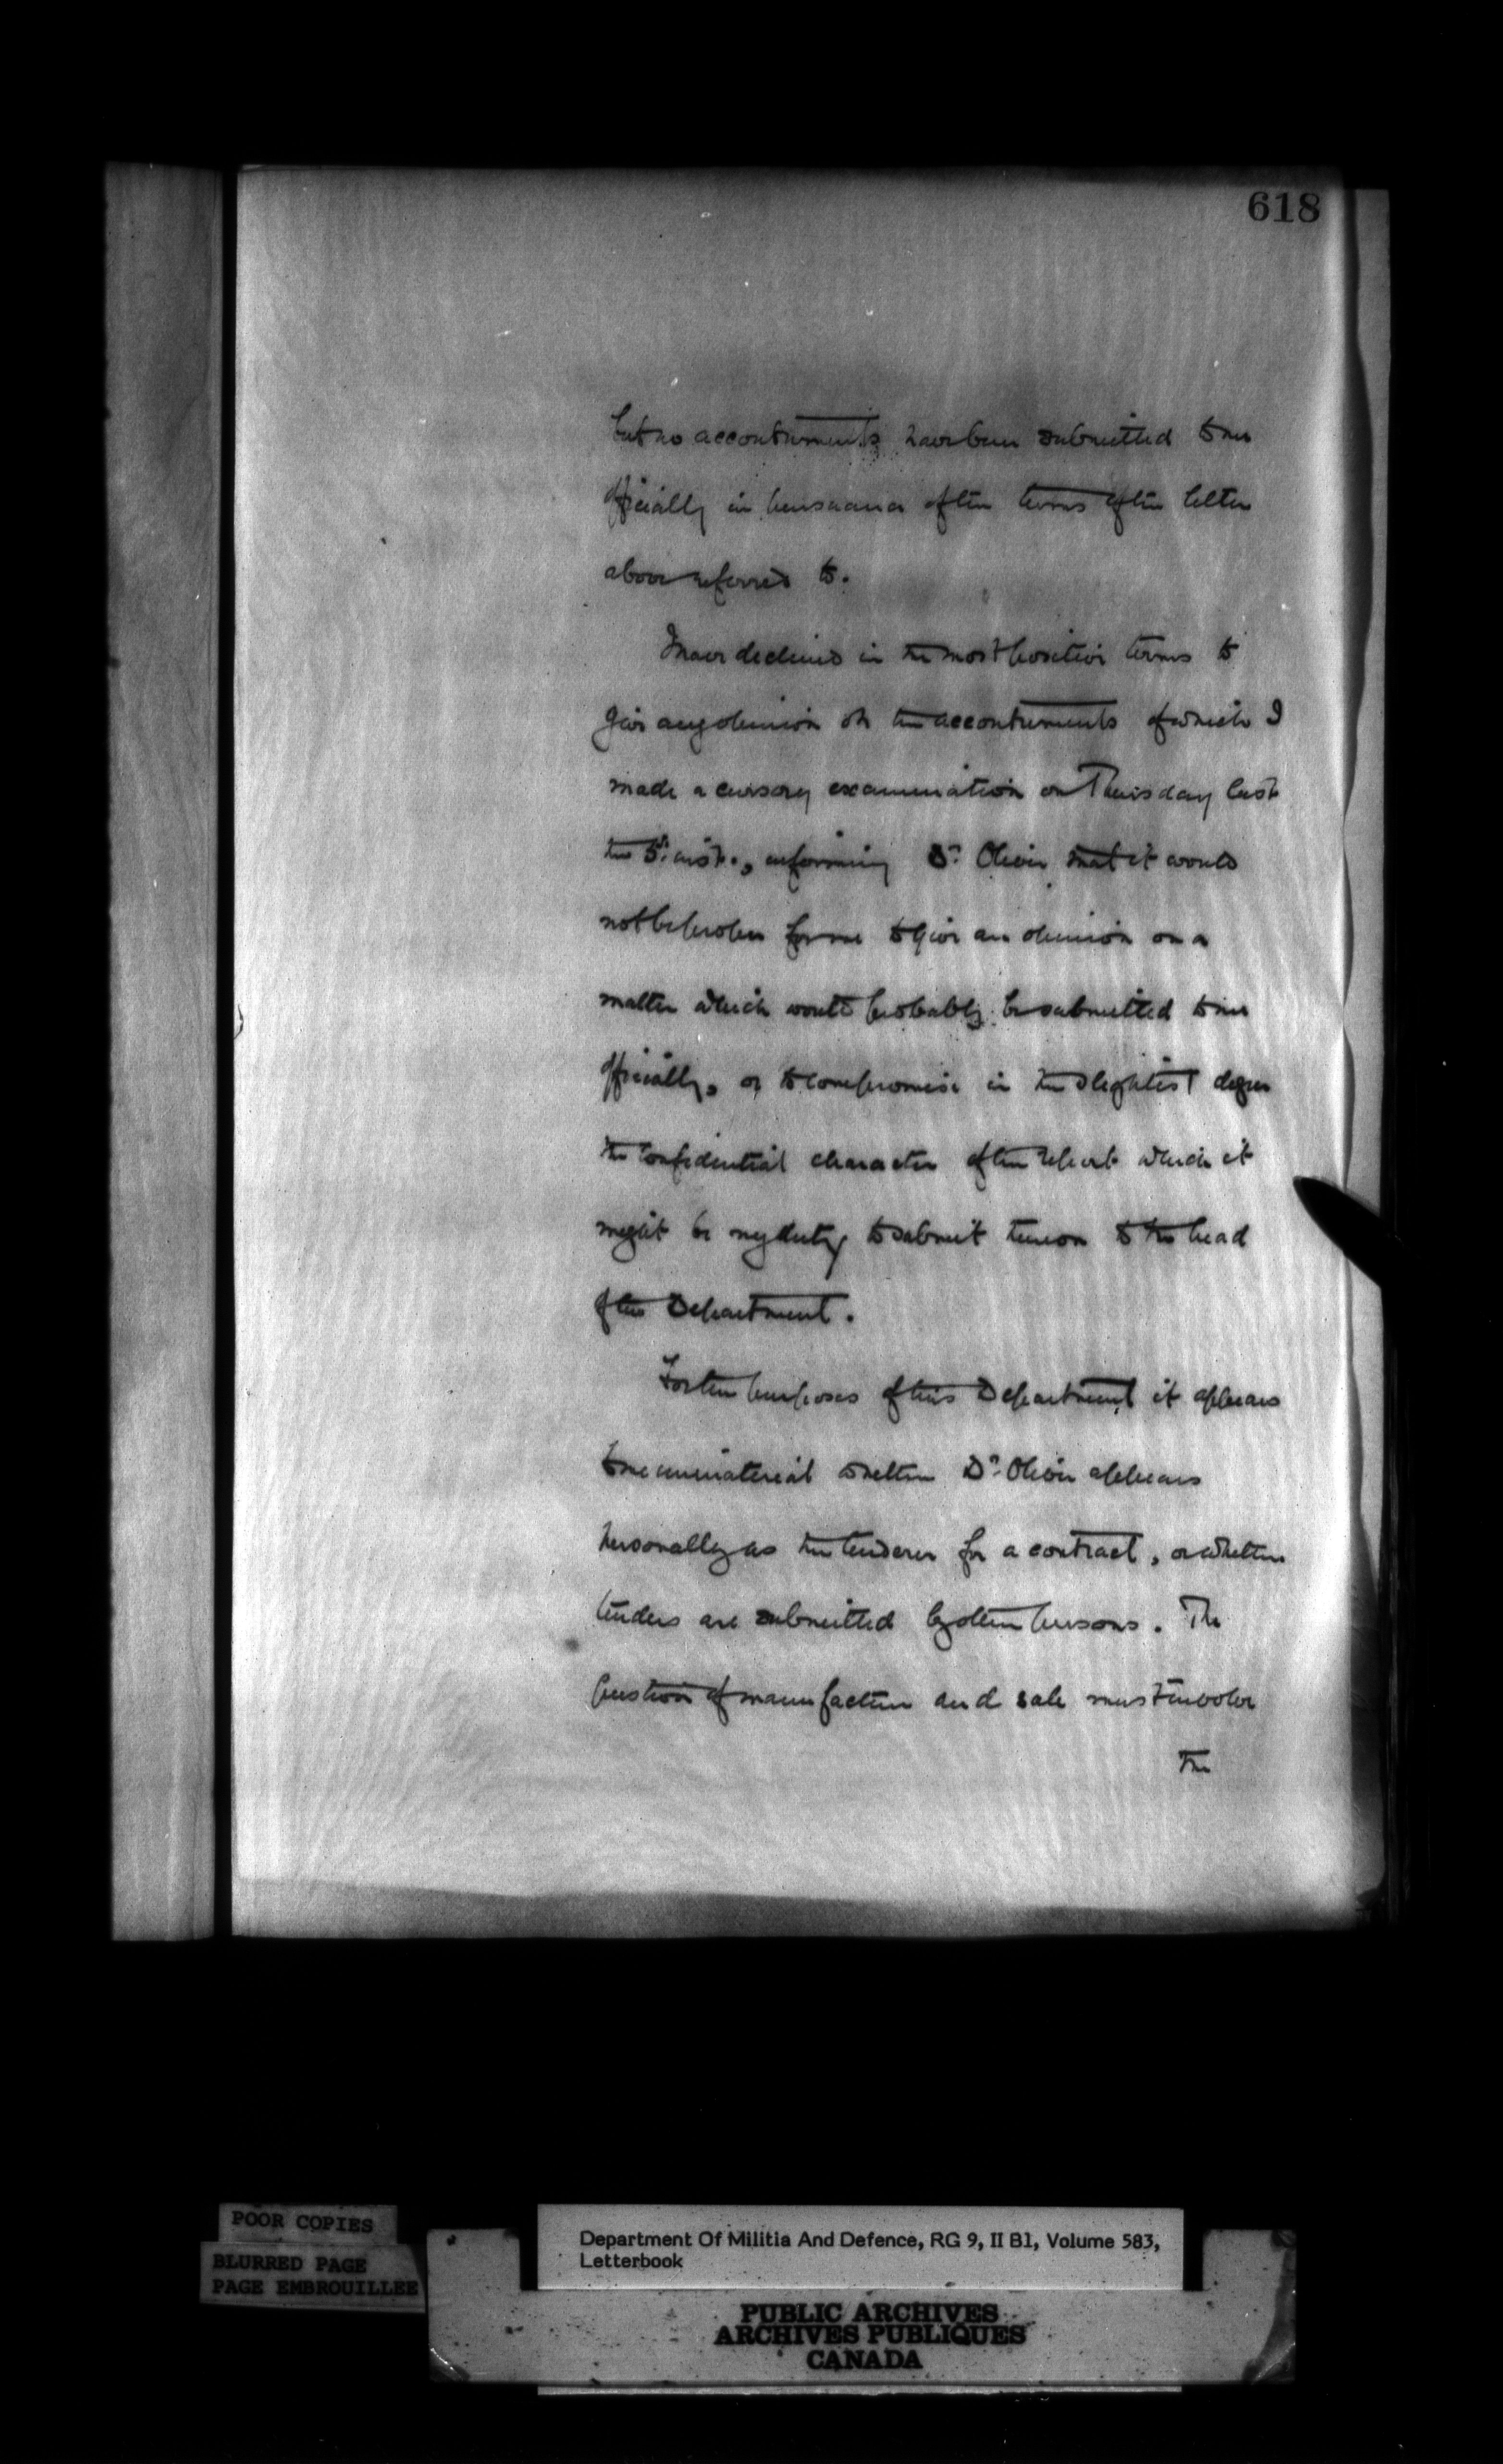 618
but no accoutrements have been submitted to me
officially in pursuance of the terms of the letter
above referred to.
I have declined in the most positive terms to
give any opinion on the accoutrements of which I
made a cursory examination on Thursday last
the 5th. inst., informing Dr. Oliver that it would
not be proper for me to give an opinion on a
matter which would probably be submitted to me
officially, or to compromise in the slightest degree
the confidential character of the report which it
might be my duty to submit thereon to the head
of the Department.
For the purposes of this Department it appears
to me immaterial whether Dr. Oliver appears
personally as the tenderer for a contract, or whether
tenders are submitted by other persons. The
question of manufacture and sale must involve
the
POOR COPIES
BLURRED PAGE
PAGE EMBROUILLEE
Department Of Militia And Defence, RG 9, II B1, Volume 583,
Letterbook
PUBLIC ARCHIVES
ARCHIVES PUBLIQUES
CANADA